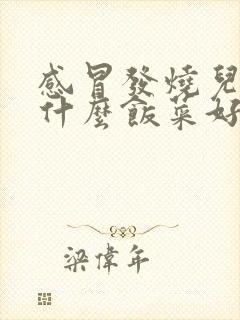 感冒發燒兒
什麼飯菜好
梁偉年